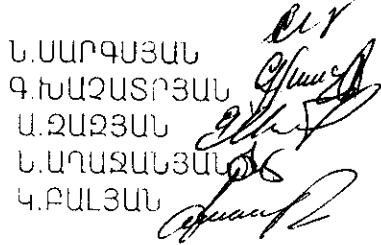 Ն.ՍԱՐԳՍՅԱՆ
Գ.ԽԱՉԱՏՐՅԱՆ
Ա.ԶԱԶՅԱՆ
Ն.ԱՂԱՋԱՆՅԱՆ
Կ.ԲԱԼՅԱՆ